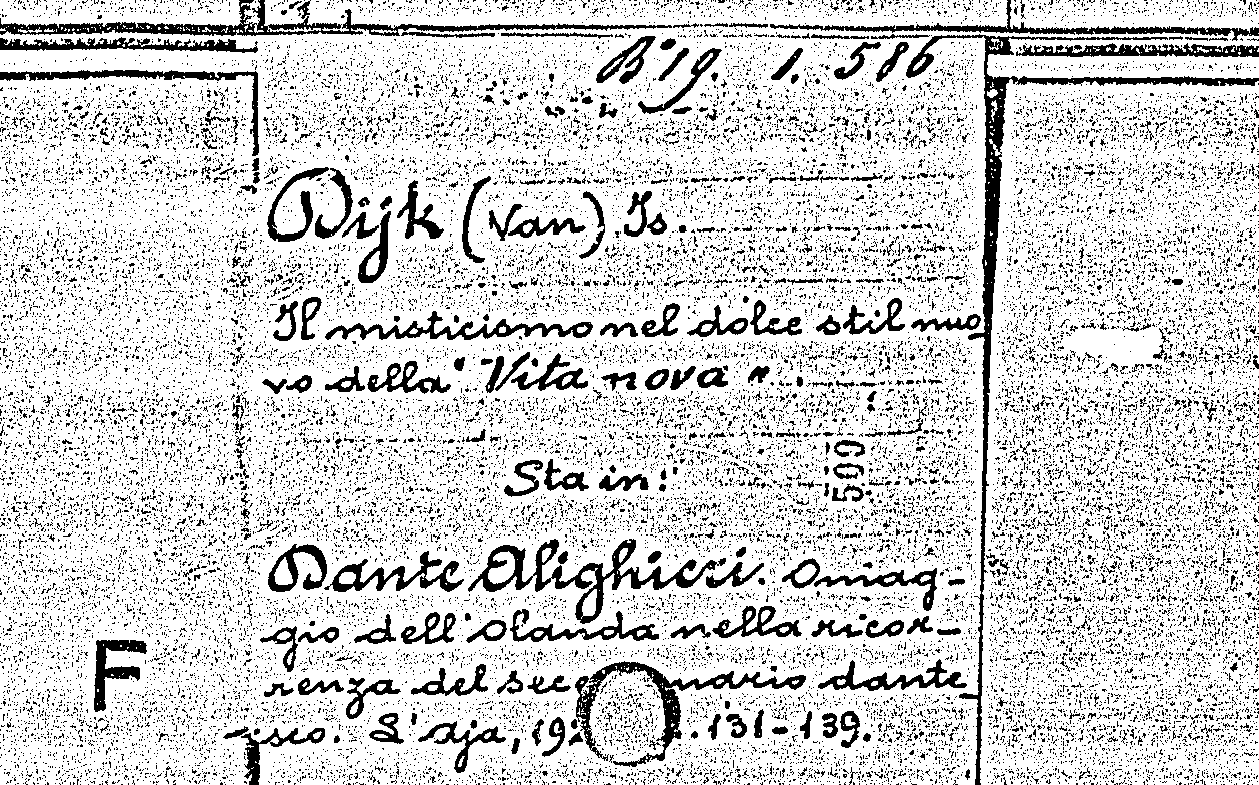 B° 19. 1. 586
Dijk (Van) Is.
Il misticismo nel dolce stil nuo
vo della "Vita nova".
Sta in:
509
Dante Alighieri. Omag-
gio dell'Olanda nella ricor-
renza del dante
sco. L'Aja, 131-139.
F